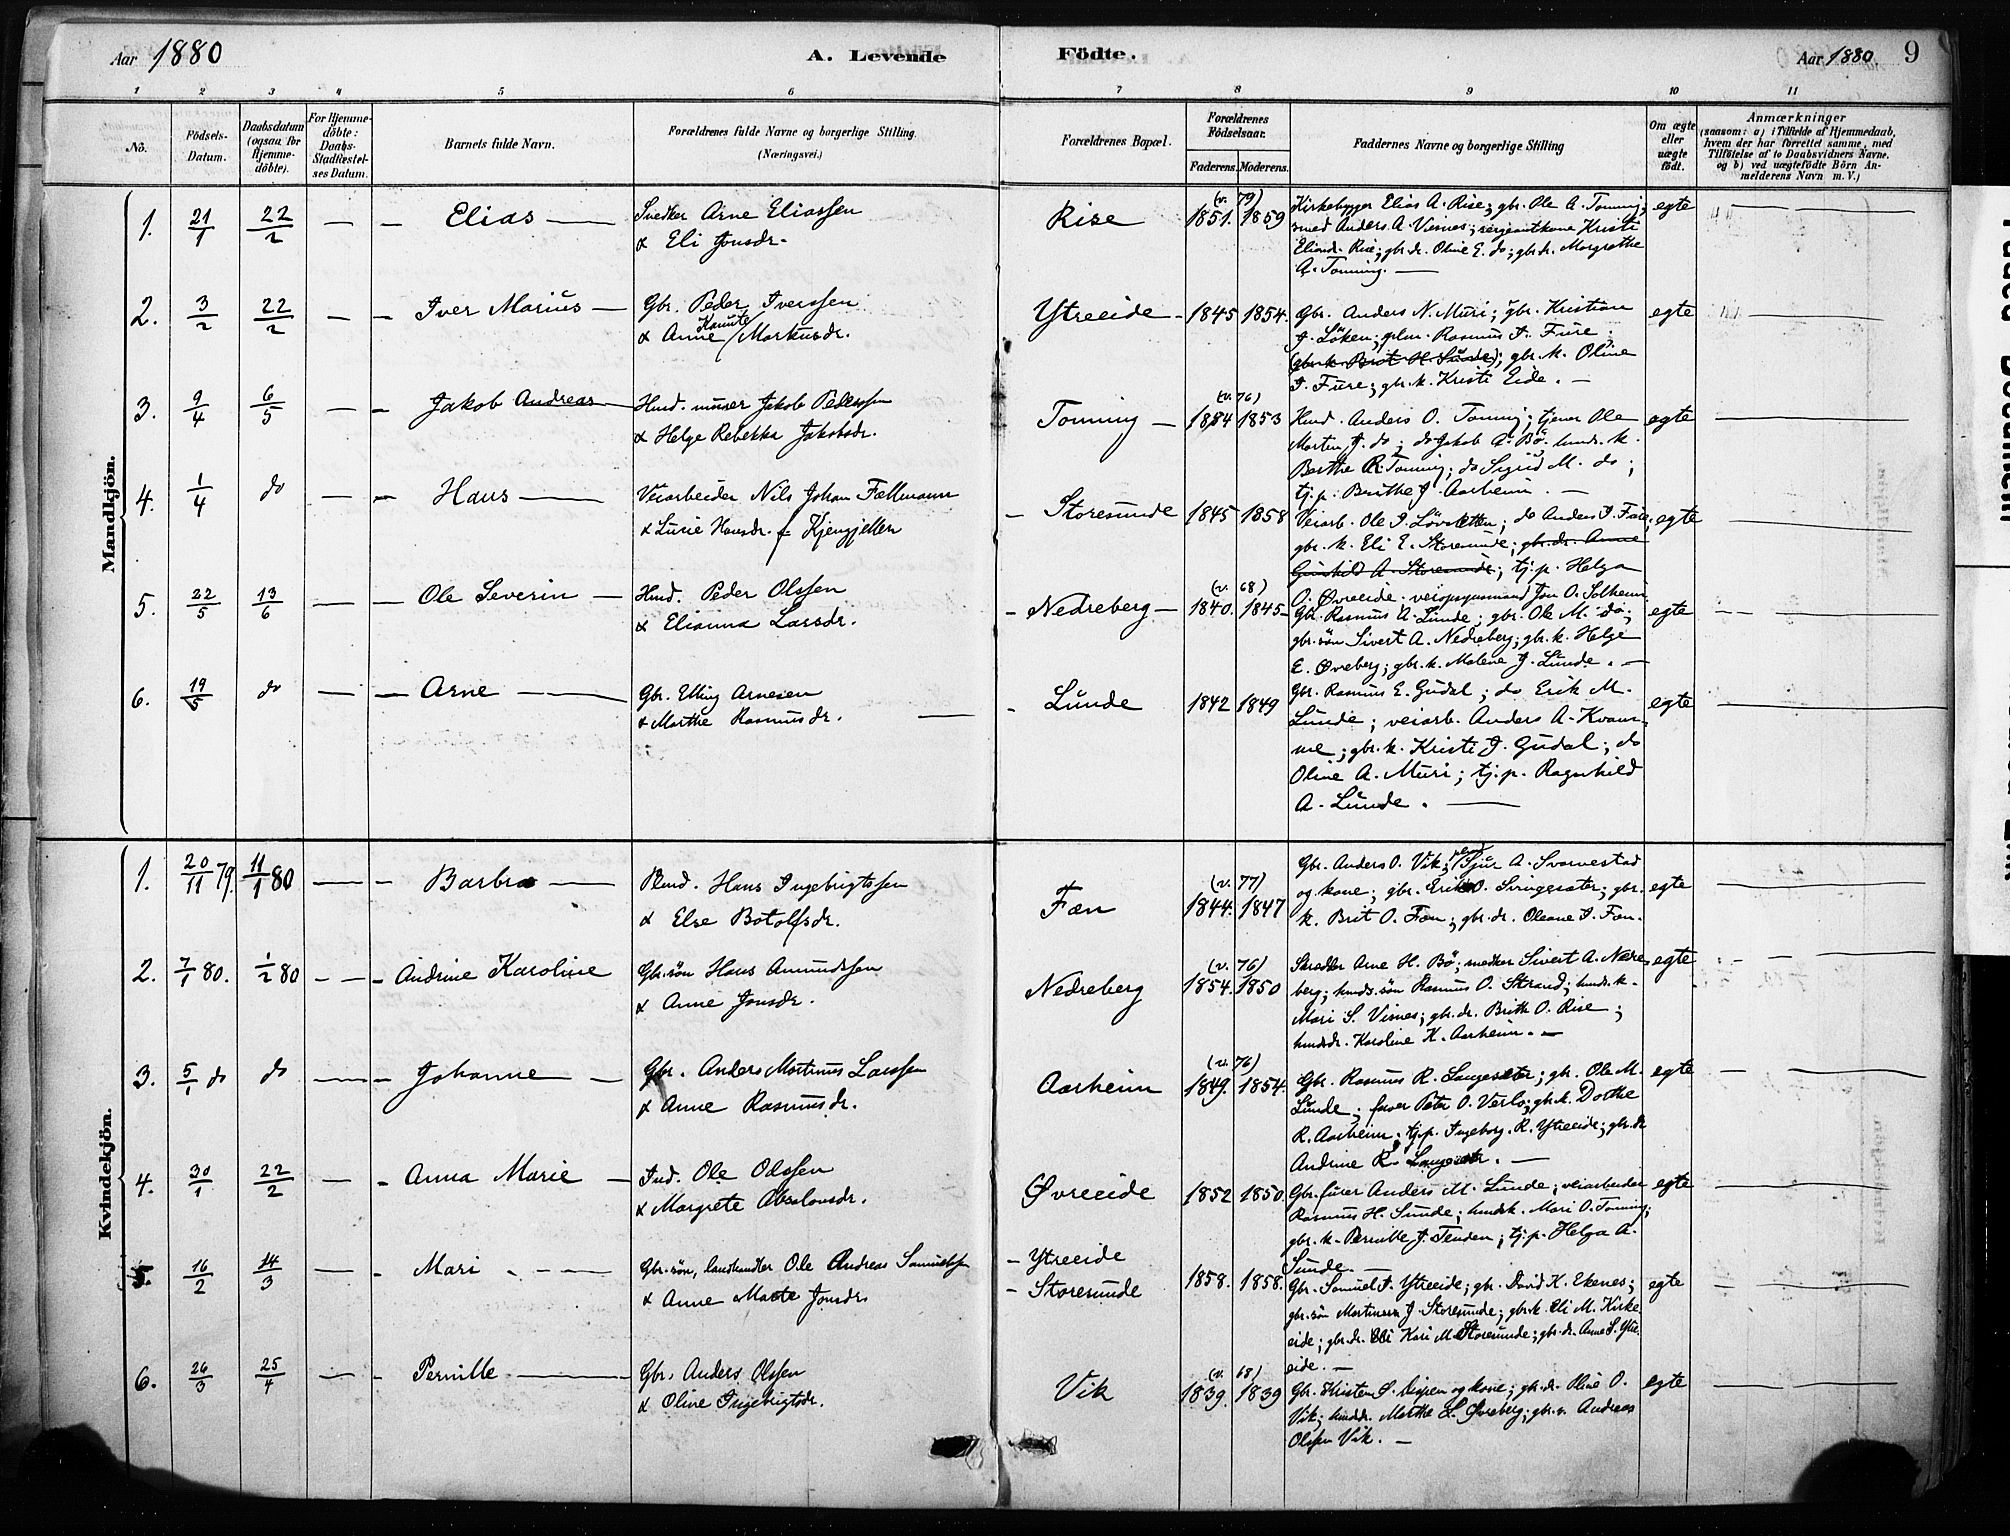 Aar 1880
A. Levende
Födte.
Aar 1880.
9
1 2 3 4 5 6 7 8 9 10 11
No.
Födsels-Datum.
Daabsdatum (ogsaa for Hjemme-döbte).
For Hjemme-döbte: Daabs-Stadfæstel-ses Datum.
Barnets fulde Navn.
Forældrenes fulde Navne og borgerlige Stilling. (Næringsvei.)
Forældrenes Bopæl.
Forældrenes Födselsaar.
Faderens. Moderens.
Faddernes Navne og borgerlige Stilling
Om ægte eller uægte födt.
Anmærkninger
(saasom: a) i Tilfælde af Hjemmedaab, hvem der har forrettet samme, med Tilföielse af to Daabsvidners Navne. og b) ved uægtefödte Börn An-melderens Navn m. V.)
Mandkjön.
1. 21/1 22/2 — Elias —
Snedker Arne Eliassen
& Eli Jonsdr.
Rise
(v. 79)
1851. 1859
Kirkebygger Elias A. Rise; gbr. Ole A. Tonning;
smed Anders A. Visnes; sergeantkone Kristi
Eliasd. Rise; gbr. dr. Oline E. do; gbr. dr. Margrethe
A. Tonning. —
egte
2. 3/2 22/2 — Iver Marius —
Gbr. Peder Iverssen
& Anne Kanute Markusdr.
Ytreeide
1845 1854.
Gbr. Anders N. Muri; gbr. Kristian
J. Löken; plm. Rasmus I. Fure;
(gbr. k. Brit H. Sunde); gbr. k. Oline
I. Fure; gbr. k. Kristi Eide. —
egte
3. 9/4 6/5 — Jakob Andreas
Hmd. murer Jakob Pederssen
& Helge Rebekka Jakobsdr.
Tonning —
(v. 76)
1854 1853
Hmd. Anders O. Tonning; tjener Ole
Martin J. do; do Jakob A. Bö. hmds. k.
Berthe R. Tonning; do Sigrid M. do;
tj. p. Brithe J. Aarheim. —
egte
4. 1/4 do — Hans —
Veiarbeider Nils Johan Fællmann
& Lurie Hansdr. f. Kjengjellen
Storesunde
1845 1858
Veiarb. Ole I. Løvsletten; do Anders I. Fure;
gbr. k. Eli E. Storesunde; gbr. dr. Anne
Gunhild A. Storesunde; tj. p. Helga
O. Øvreeide. veiopsynsmand Jon O. Solheim
egte
5. 22/5 13/6 — Ole Severin —
Hmd. Peder Olssen
& Elianna Larsdr.
Nedreberg —
(v. 68)
1840. 1845
Gbr. Rasmus A. Lunde; gbr. Ole M. do;
gbr. sön Sivert A. Nedreberg; gbr. k. Helge
E. Øvreberg; gbr. k. Malene J. Lunde. —
egte
6. 19/5 do — Arne —
Gbr. Elling Arnesen
& Marthe Rasmusdr.
Lunde
1842 1849
Gbr. Rasmus E. Gudal; do Erik M.
Lunde; veiarb. Anders A. Kvam-
me; gbr. k. Kristi J. Gudal; do
Oline A. Muri; tj. p. Ragnhild
A. Lunde. —
egte
Kvindekjön.
1. 20/11 79. 11/1 80 — Barbra —
Hans Ingebrigtssen
& Else Botolfsdr.
Fæn
(v. 77)
1844. 1847
Gbr. Anders O. Vik; Sjur A. Svorvestad
og kone; gbr. Erik O. Sringesæter; gbr.
k. Brit O. Fæn; gbr. dr. Oleane I. Fæn.
egte
2. 7/1 80. 1/2 80 — Andrine Karoline
Gbr. sön Hans Amundssen
& Anne Jonsdr.
Nedreberg
(v. 76)
1854. 1850
Skrædder Arne H. Bö; snedker Sivert A. Nedre-
berg; hmds. sön Rasmus O. Strand; hmds. k.
Mari S. Visnes; gbr. dr. Brithe O. Rise;
hmdsdr. Karoline K. Aarheim. —
egte
3. 5/1 do do — Johanne —
Gbr. Anders Martinus Larssen
& Anne Rasmusdr.
Aarheim
(v. 76)
1849. 1854.
Gbr. Rasmus R. Langesæter; gbr. Ole M.
Lunde; furer Peter O. Verlo; gbr. k. Dorthe
R. Aarheim; tj. p. Ingeborg R. Ytreeide; gbr. dr
Andrine R. Langesæter. —
egte
4. 30/1 22/2 — Anna Marie —
Ind. Ole Olssen
& Margrete Absalonsdr.
Øvreeide
1852 1850.
Gbr. furer Anders M. Lunde; veiarbeider
Rasmus H. Sunde; hmdsk. Mari O. Tonning;
gbr. k. Pernille J. Tenden; tj. p. Helga A.
Sunde. —
egte
5. 16/2 14/3 — Mari —
Gbr. sön, landhandler Ole Andreas Samuelssen
& Anne Marte Jonsdr
Ytreeide
Storesunde
1858. 1858.
Gbr. Samuel I. Ytreeide; gbr. David K. Ekenes;
gbr. sön Martinus J. Storesunde; gbr. k. Eli M. Kirke-
eide; gbr. dr. Kari M. Storesunde; gbr. dr. Anne S. Ytre-
eide. —
egte
6. 26/3 25/4 — Pernille —
Gbr. Anders Olssen
& Oline Ingebrigtsdr.
Vik
(v. 68)
1839. 1839
Gbr. Kristen og kone; gbr. dr. Oline O.
Vik; hmdsdr. Marthe L. Øvreberg; gbr. s. Andreas
Olssen Vik. —
egte